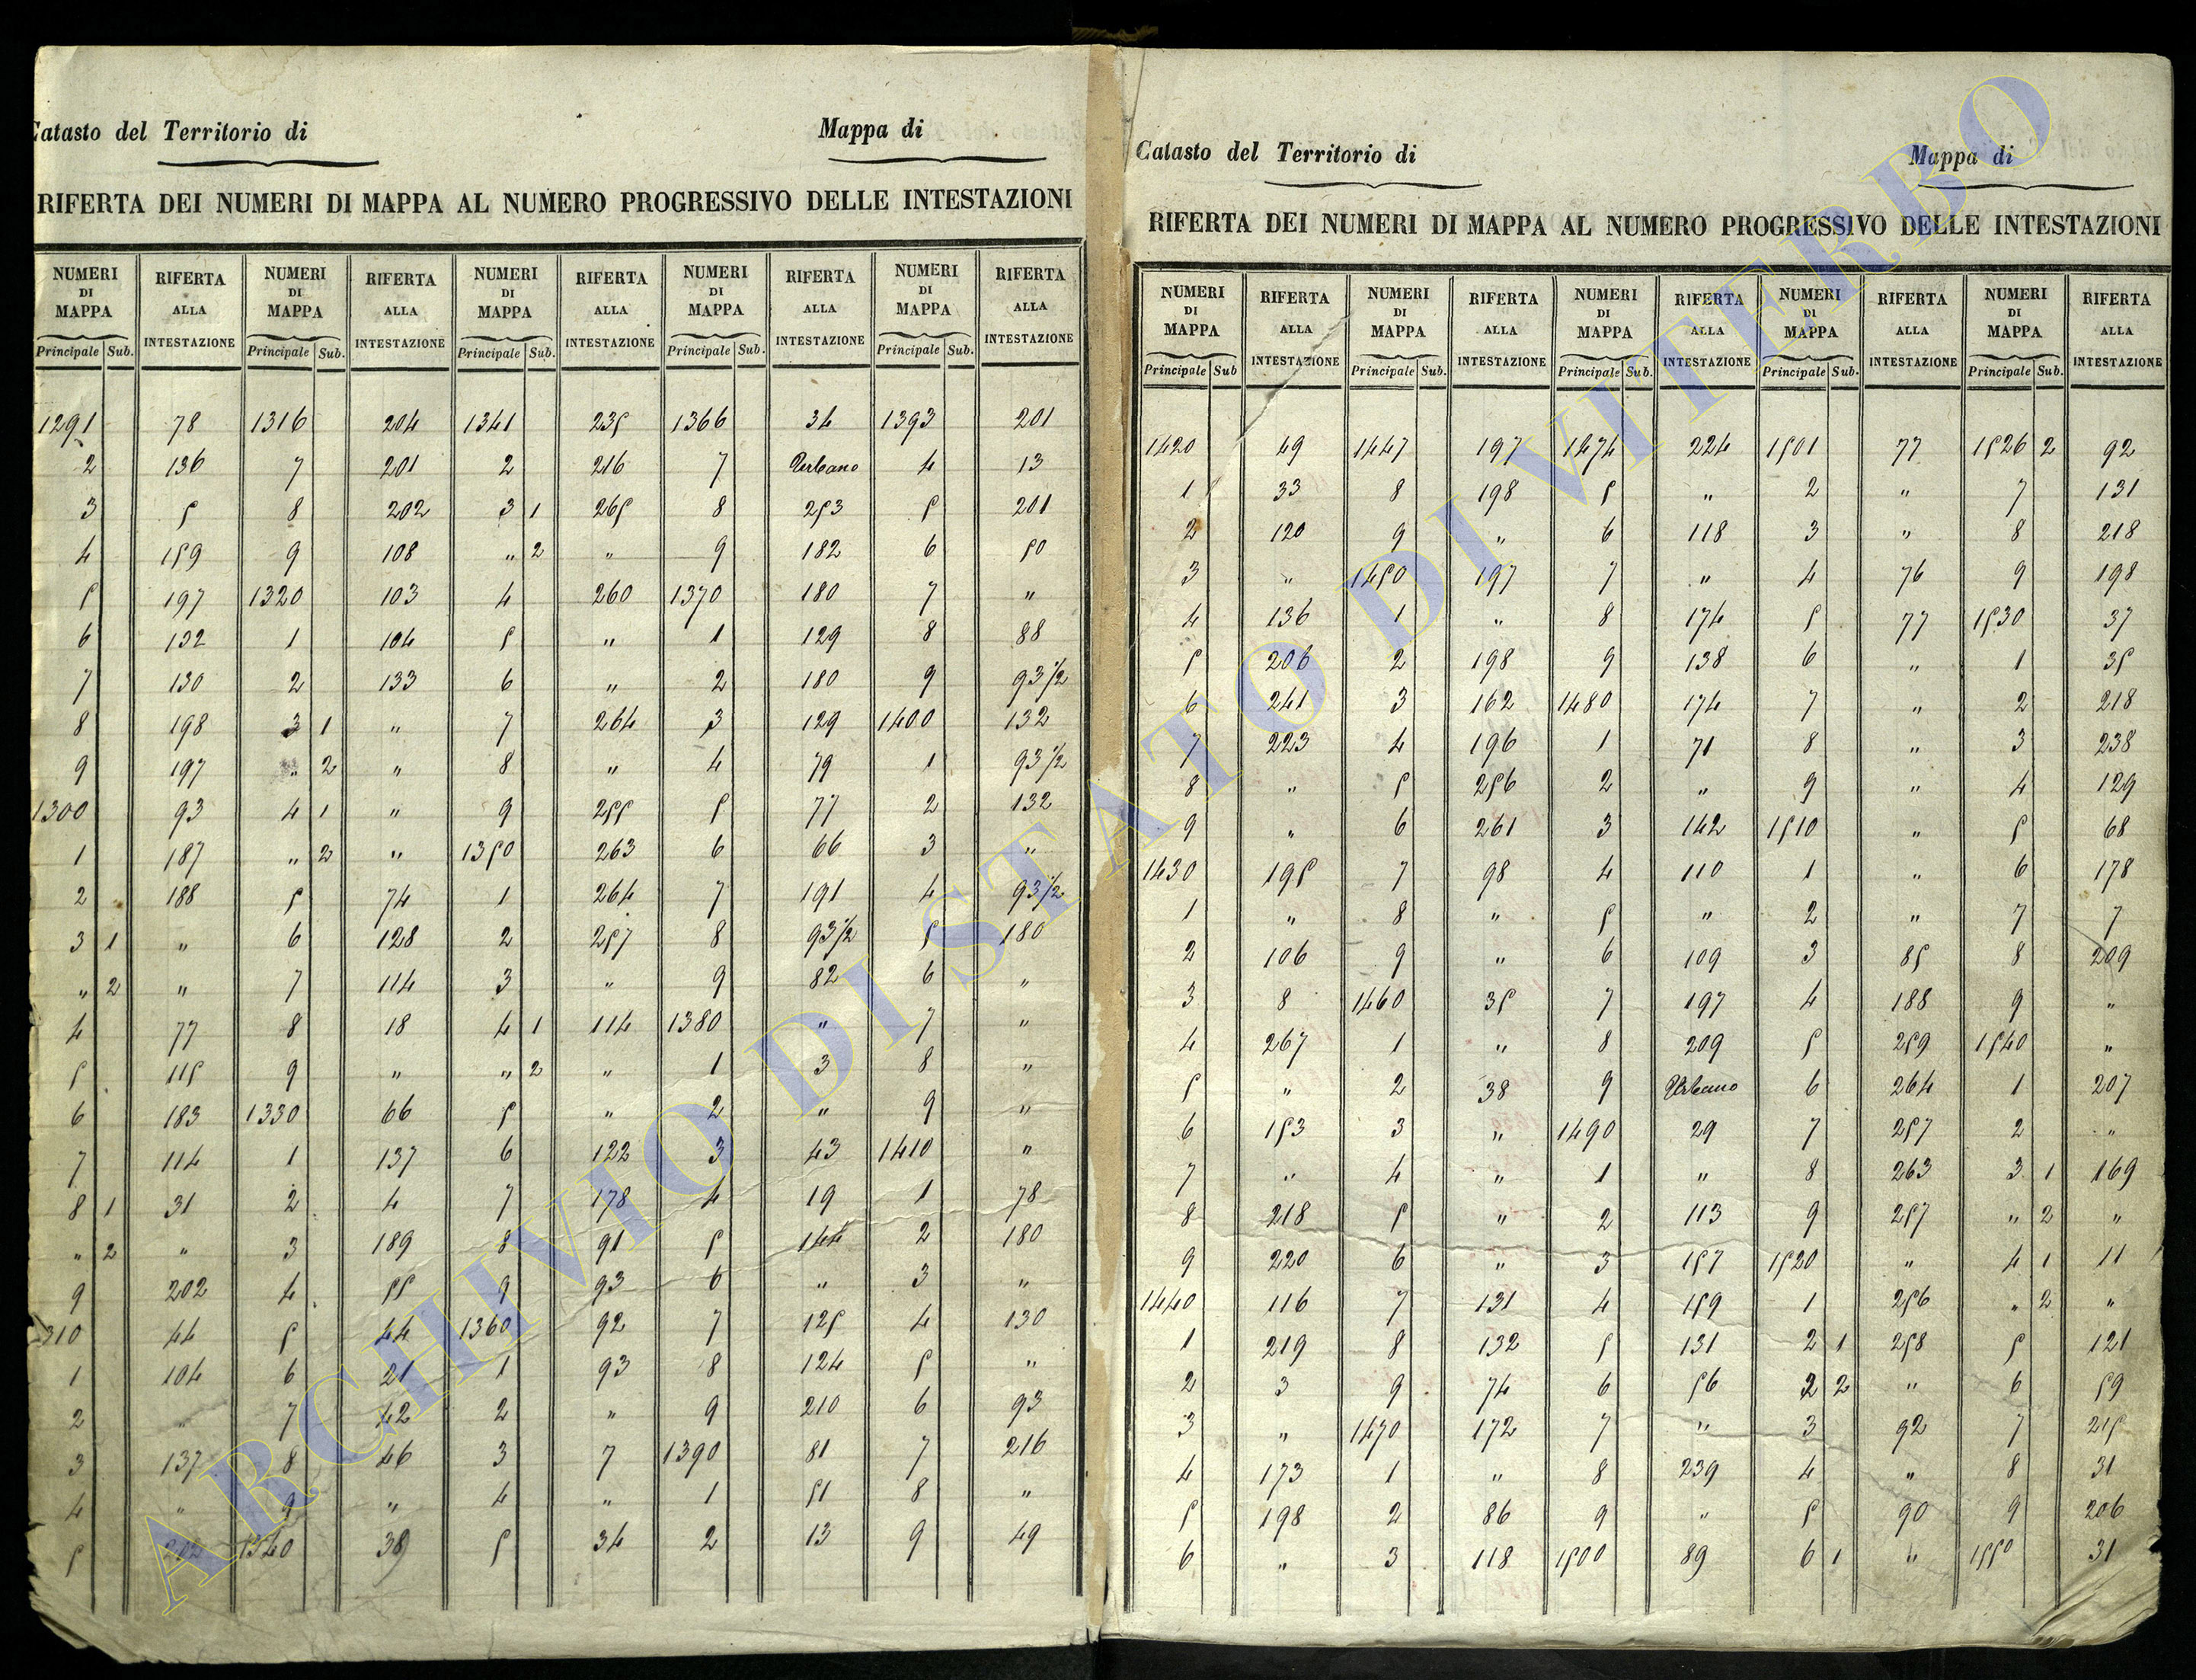 Catasto del Territorio di Mappa di
RIFERTA DEI NUMERI DI MAPPA AL NUMERO PROGRESSIVO DELLE INTESTAZIONI
NUMERI DI MAPPA RIFERTA ALLA INTESTAZIONE NUMERI DI MAPPA RIFERTA ALLA INTESTAZIONE NUMERI DI MAPPA RIFERTA ALLA INTESTAZIONE NUMERI DI MAPPA RIFERTA ALLA INTESTAZIONE NUMERI DI MAPPA RIFERTA ALLA INTESTAZIONE
Principale Sub. Principale Sub. Principale Sub. Principale Sub. Principale Sub.
1291 78 1316 204 1341 235 1366 34 1393 201
2 136 7 201 2 216 7 Urbano 4 13
3 5 8 202 3 1 265 8 253 5 201
4 159 9 108 „ 2 „ 9 182 6 50
5 197 1320 103 4 260 1370 180 7 „
6 132 1 104 5 „ 1 129 8 88
7 130 2 133 6 „ 2 180 9 93½
8 198 3 1 „ 7 264 3 129 1400 132
9 197 „ 2 „ 8 „ 4 79 1 93½
1300 93 4 1 „ 9 255 5 77 2 132
1 187 „ 2 „ 1350 263 6 66 3 „
2 188 5 74 1 264 7 191 4 93½
3 1 „ 6 128 2 257 8 93½ 5 180
„ 2 „ 7 114 3 „ 9 82 6 „
4 77 8 18 4 1 114 1380 „ 7 „
5 115 9 „ „ 2 „ 1 3 8 „
6 183 1330 66 5 „ 2 „ 9 „
7 114 1 137 6 122 3 43 1410 „
8 1 31 2 4 7 178 4 19 1 78
„ 2 „ 3 189 8 91 5 144 2 180
9 202 4 55 9 93 6 „ 3 „
310 44 5 44 1360 92 7 125 4 130
1 104 6 21 1 93 8 124 5 „
2 „ 7 42 2 „ 9 210 6 93
3 137 8 46 3 7 1390 81 7 216
4 „ 9 „ 4 „ 1 51 8 „
5 202 1340 38 5 34 2 13 9 49
Catasto del Territorio di Mappa di
RIFERTA DEI NUMERI DI MAPPA AL NUMERO PROGRESSIVO DELLE INTESTAZIONI
NUMERI DI MAPPA RIFERTA ALLA INTESTAZIONE NUMERI DI MAPPA RIFERTA ALLA INTESTAZIONE NUMERI DI MAPPA RIFERTA ALLA INTESTAZIONE NUMERI DI MAPPA RIFERTA ALLA INTESTAZIONE NUMERI DI MAPPA RIFERTA ALLA INTESTAZIONE
Principale Sub Principale Sub. Principale Sub. Principale Sub. Principale Sub.
1420 49 1447 197 1474 224 1501 77 1526 2 92
1 33 8 198 5 „ 2 „ 7 131
2 120 9 „ 6 118 3 „ 8 218
3 „ 1450 197 7 „ 4 76 9 198
4 136 1 „ 8 174 5 77 1530 37
5 206 2 198 9 138 6 „ 1 35
6 241 3 162 1480 174 7 „ 2 218
7 223 4 196 1 71 8 „ 3 238
8 „ 5 256 2 „ 9 „ 4 129
9 „ 6 261 3 142 1510 „ 5 68
1430 195 7 98 4 110 1 „ 6 178
1 „ 8 „ 5 „ 2 „ 7 7
2 106 9 „ 6 109 3 85 8 209
3 8 1460 35 7 197 4 188 9 „
4 267 1 „ 8 209 5 259 1540 „
5 „ 2 38 9 Urbano 6 264 1 207
6 153 3 „ 1490 29 7 257 2 „
7 „ 4 „ 1 „ 8 263 3 1 169
8 218 5 „ 2 113 9 257 „ 2 „
9 220 6 „ 3 157 1520 „ 4 1 11
1440 116 7 131 4 159 1 256 „ 2 „
1 219 8 132 5 131 2 1 258 5 121
2 3 9 74 6 56 2 2 „ 6 59
3 „ 1470 172 7 „ 3 92 7 215
4 173 1 „ 8 239 4 „ 8 31
5 198 2 86 9 „ 5 90 9 206
6 „ 3 118 1500 89 6 1 „ 1550 31
ARCHIVIO DI STATO DI VITERBO